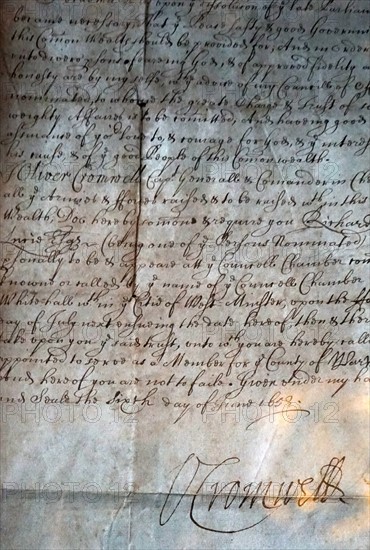 upon y dissolution of y late Parliam
became necessary, that y Peace safty & good Governm
this Comon Wealth should be provided for, And in order
unto persons fearing God, & of approved fidelity a
honesty are by my selfe wth y advice of my Councill of
nominated, to whome the greate Charge & Trust of so
weighty Affaires is to be comitted, And having good
assurance of yo Love to, & courage for God, & y interest
his cause, & of y good People of this Comonwealth.
I Oliver Cromwell Capt Generall & Comander in Che
all y Armies & forces raised & to be raised wthin this
Wealth, Doe hereby somone & require you Richard
(being one of y Persons Nominated)
psonally to be & appeare at y Councell Chamber com
knowne or called by y name of y Councell Chamber
Whitehall wthin y Citie of West Minster, upon the
day of July next ensueing the date hereof, then & there
take upon you y said trust, unto wch you are hereby calle
appointed to serve as a Member for y County of Warw
And hereof you are not to faile. Given under my ha
and Seale the Sixth day of June
OCromwell
PHOTO 12